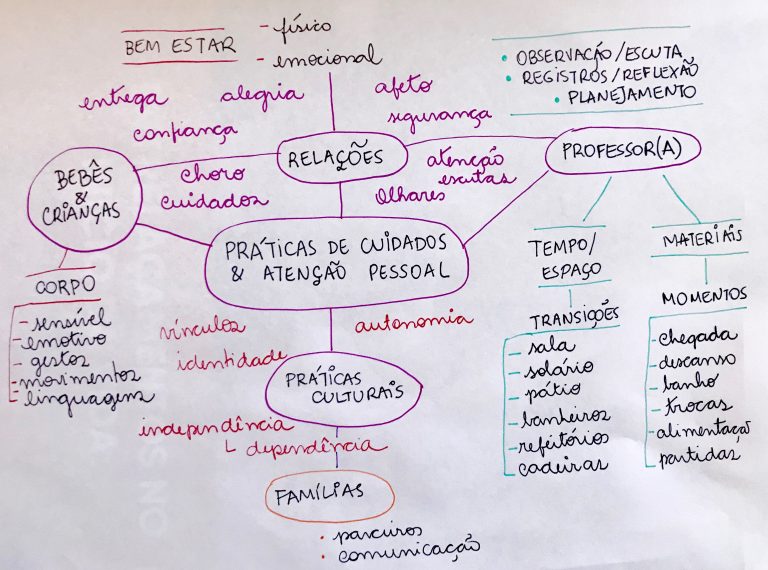 BEM ESTAR
- físico
- emocional
• OBSERVAÇÃO/ESCUTA
• REGISTROS/REFLEXÃO
• PLANEJAMENTO
entrega
alegria
afeto
confiança
segurança
BEBÊS
&
CRIANÇAS
choro
cuidados
RELAÇÕES
atenção
escutas
Olhares
PROFESSOR(A)
PRÁTICAS DE CUIDADOS
& ATENÇÃO PESSOAL
CORPO
- sensível
- emotivo
- gestos
- movimentos
- linguagens
vínculos
identidade
autonomia
PRÁTICAS
CULTURAIS
independência
dependência
FAMÍLIAS
• parceiros
• comunicação
TEMPO/
ESPAÇO
TRANSIÇÕES
- sala
- solário
- pátio
- banheiros
- refeitórios
cadeiras
MATERIAIS
MOMENTOS
- chegada
- descanso
- banho
- trocas
- alimentação
partidas